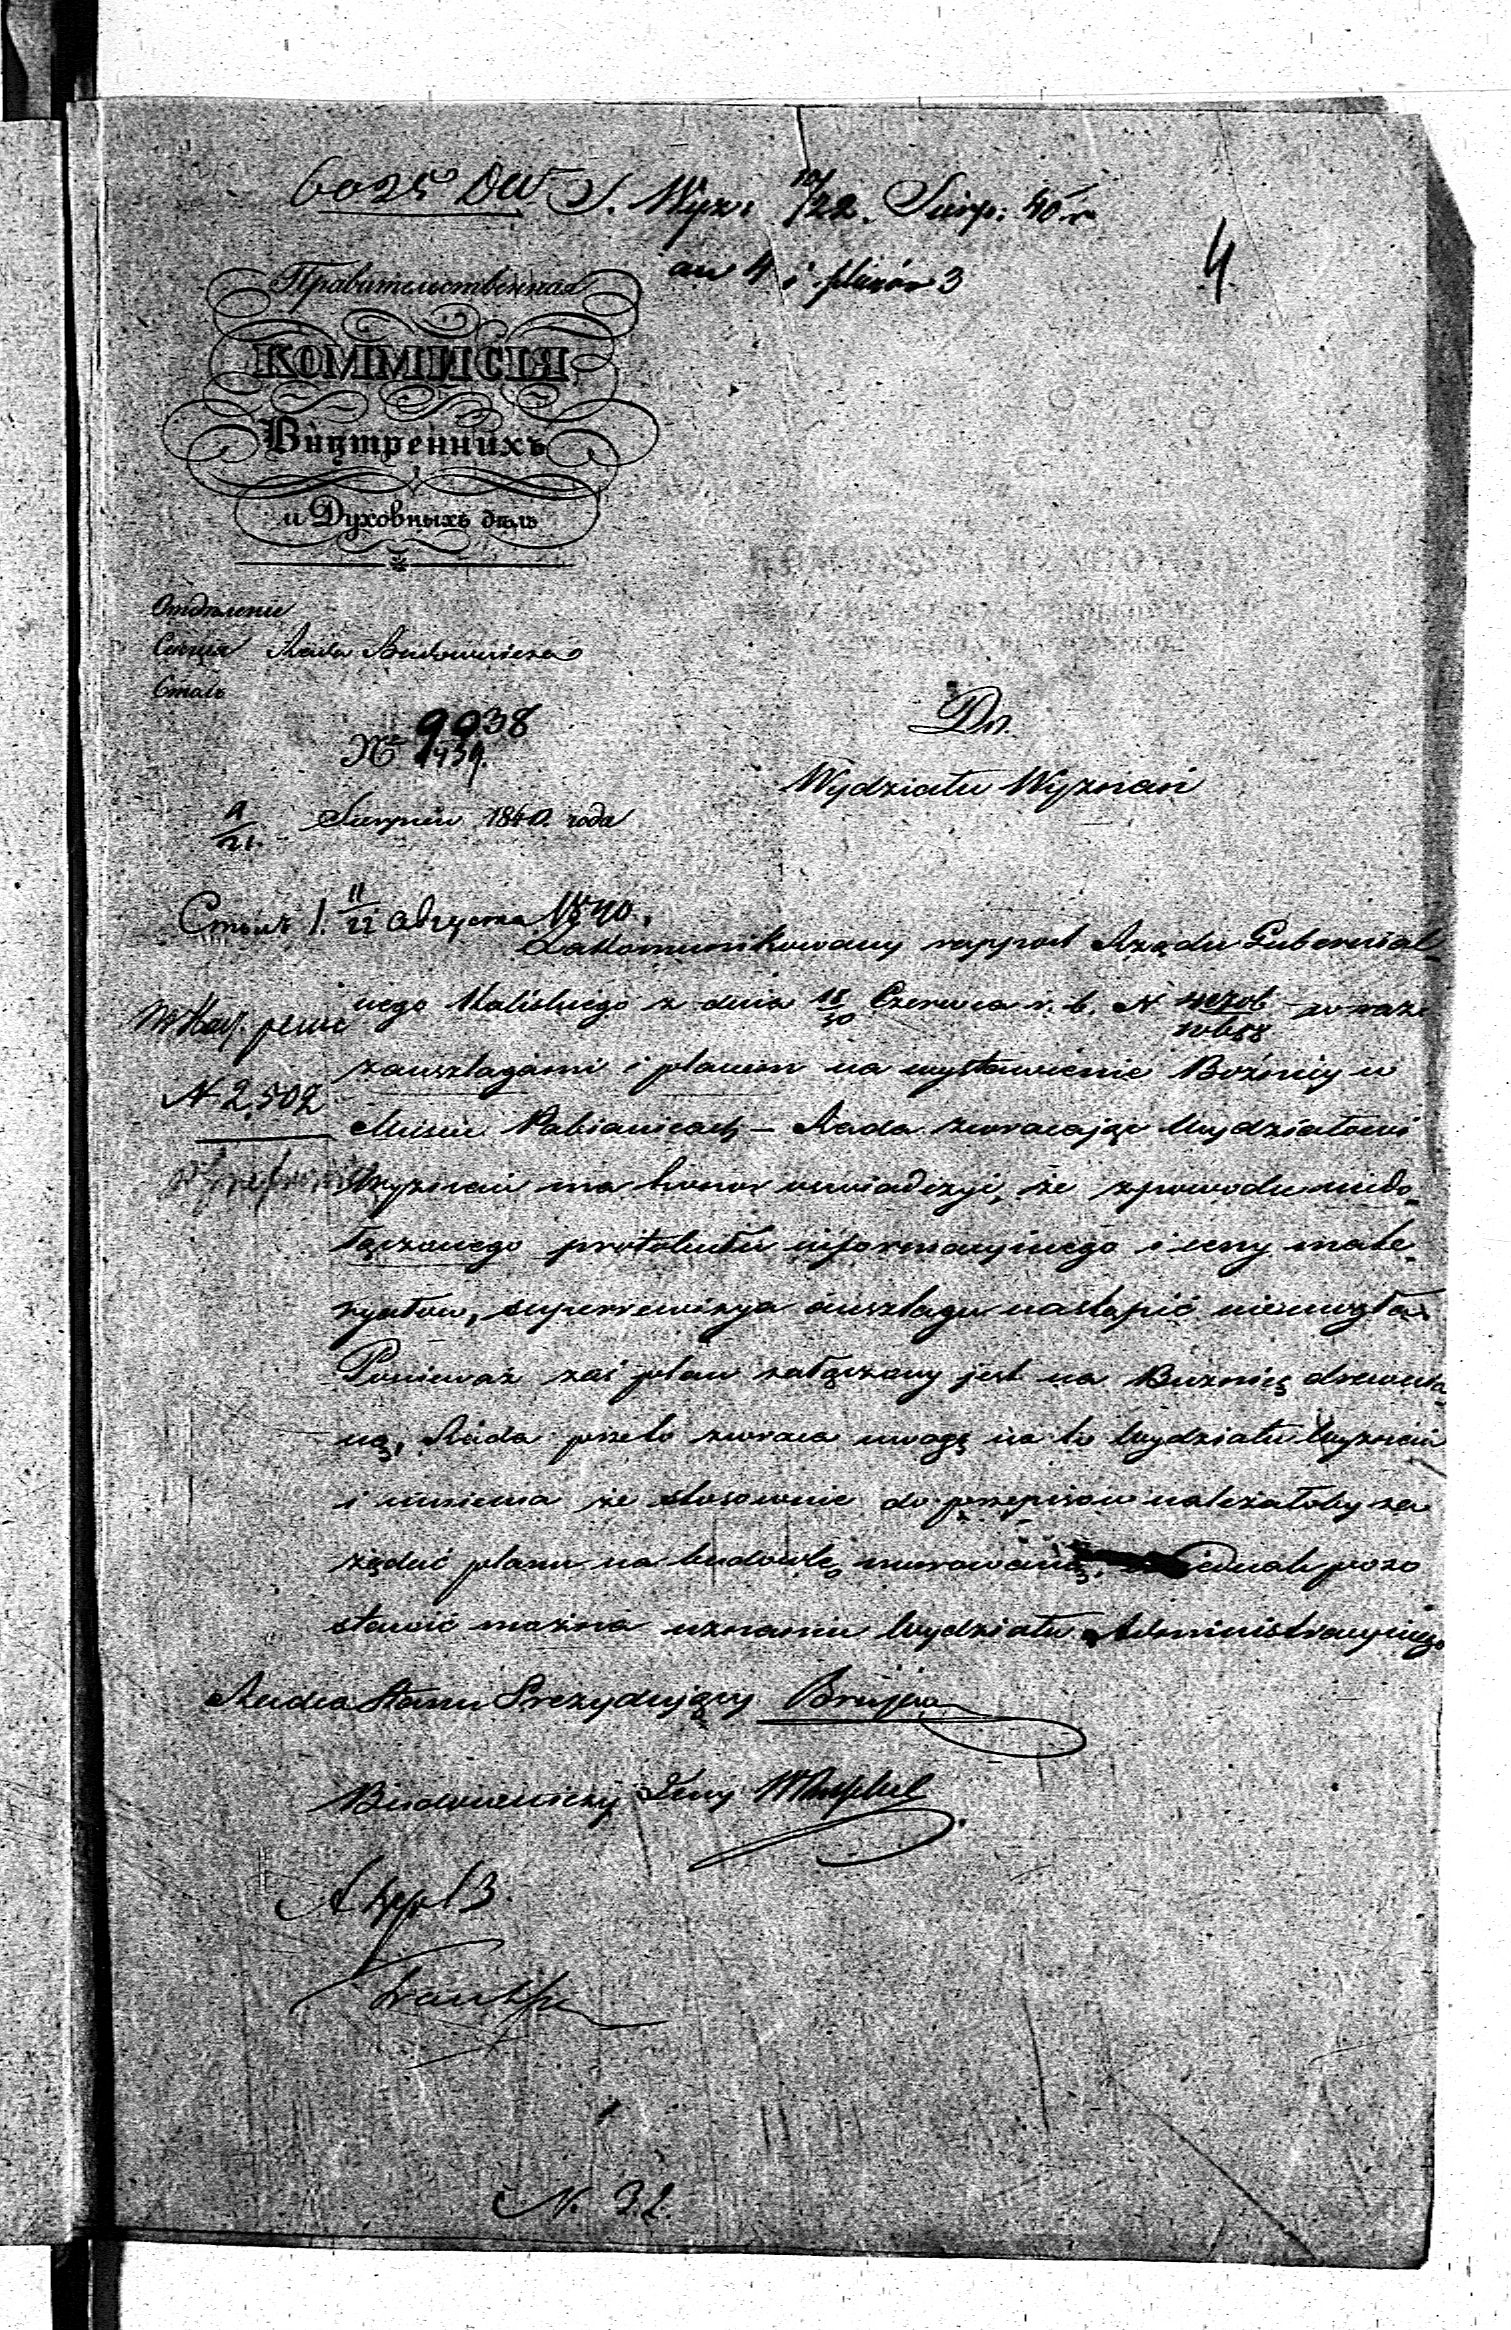 6025 DW S. Wyz: 10/22. Sierp: 40 r
an 4 i planów 3
4
Правительственная
КОММИСІЯ
Внутреннихъ
и Духовныхъ дѣлъ
Отдѣленіе
Секція Rada Budownicza
Столъ
№ 9038
Do
Wydziału Wyznań
9/21. Sierpnia 1840. roda
11/22 Августа 1840.
Zakkomunikowany rapport Rządu Gubernial-
nego Kaliskiego z dnia 18/30 Czerwca r. b. N w raz
z anszlagami i planem na wystawienie Bożnicy w
N 2,502
Mieście Pabianicach – Rada zwracając Wydziałowi
Wyznań ma honor oświadczyć, że z powodu niedo-
łączonego protokułu informacyjnego i ceny mate-
ryałów, superrewizya anszlagu nastąpić niemogła.
Ponieważ zaś plan załączony jest na Bużnicę drewnia-
ną, Rada przeto zwraca uwagę na to Wydziału Wyznań
i mniema że stosownie do przepisów należałoby za
żądać planu na budowlę murowaną, jednak pozo
stawić można uznaniu Wydziału Administracyjnego
Radca Stanu Prezydujący
Budowniczy Jlny
N. 32.